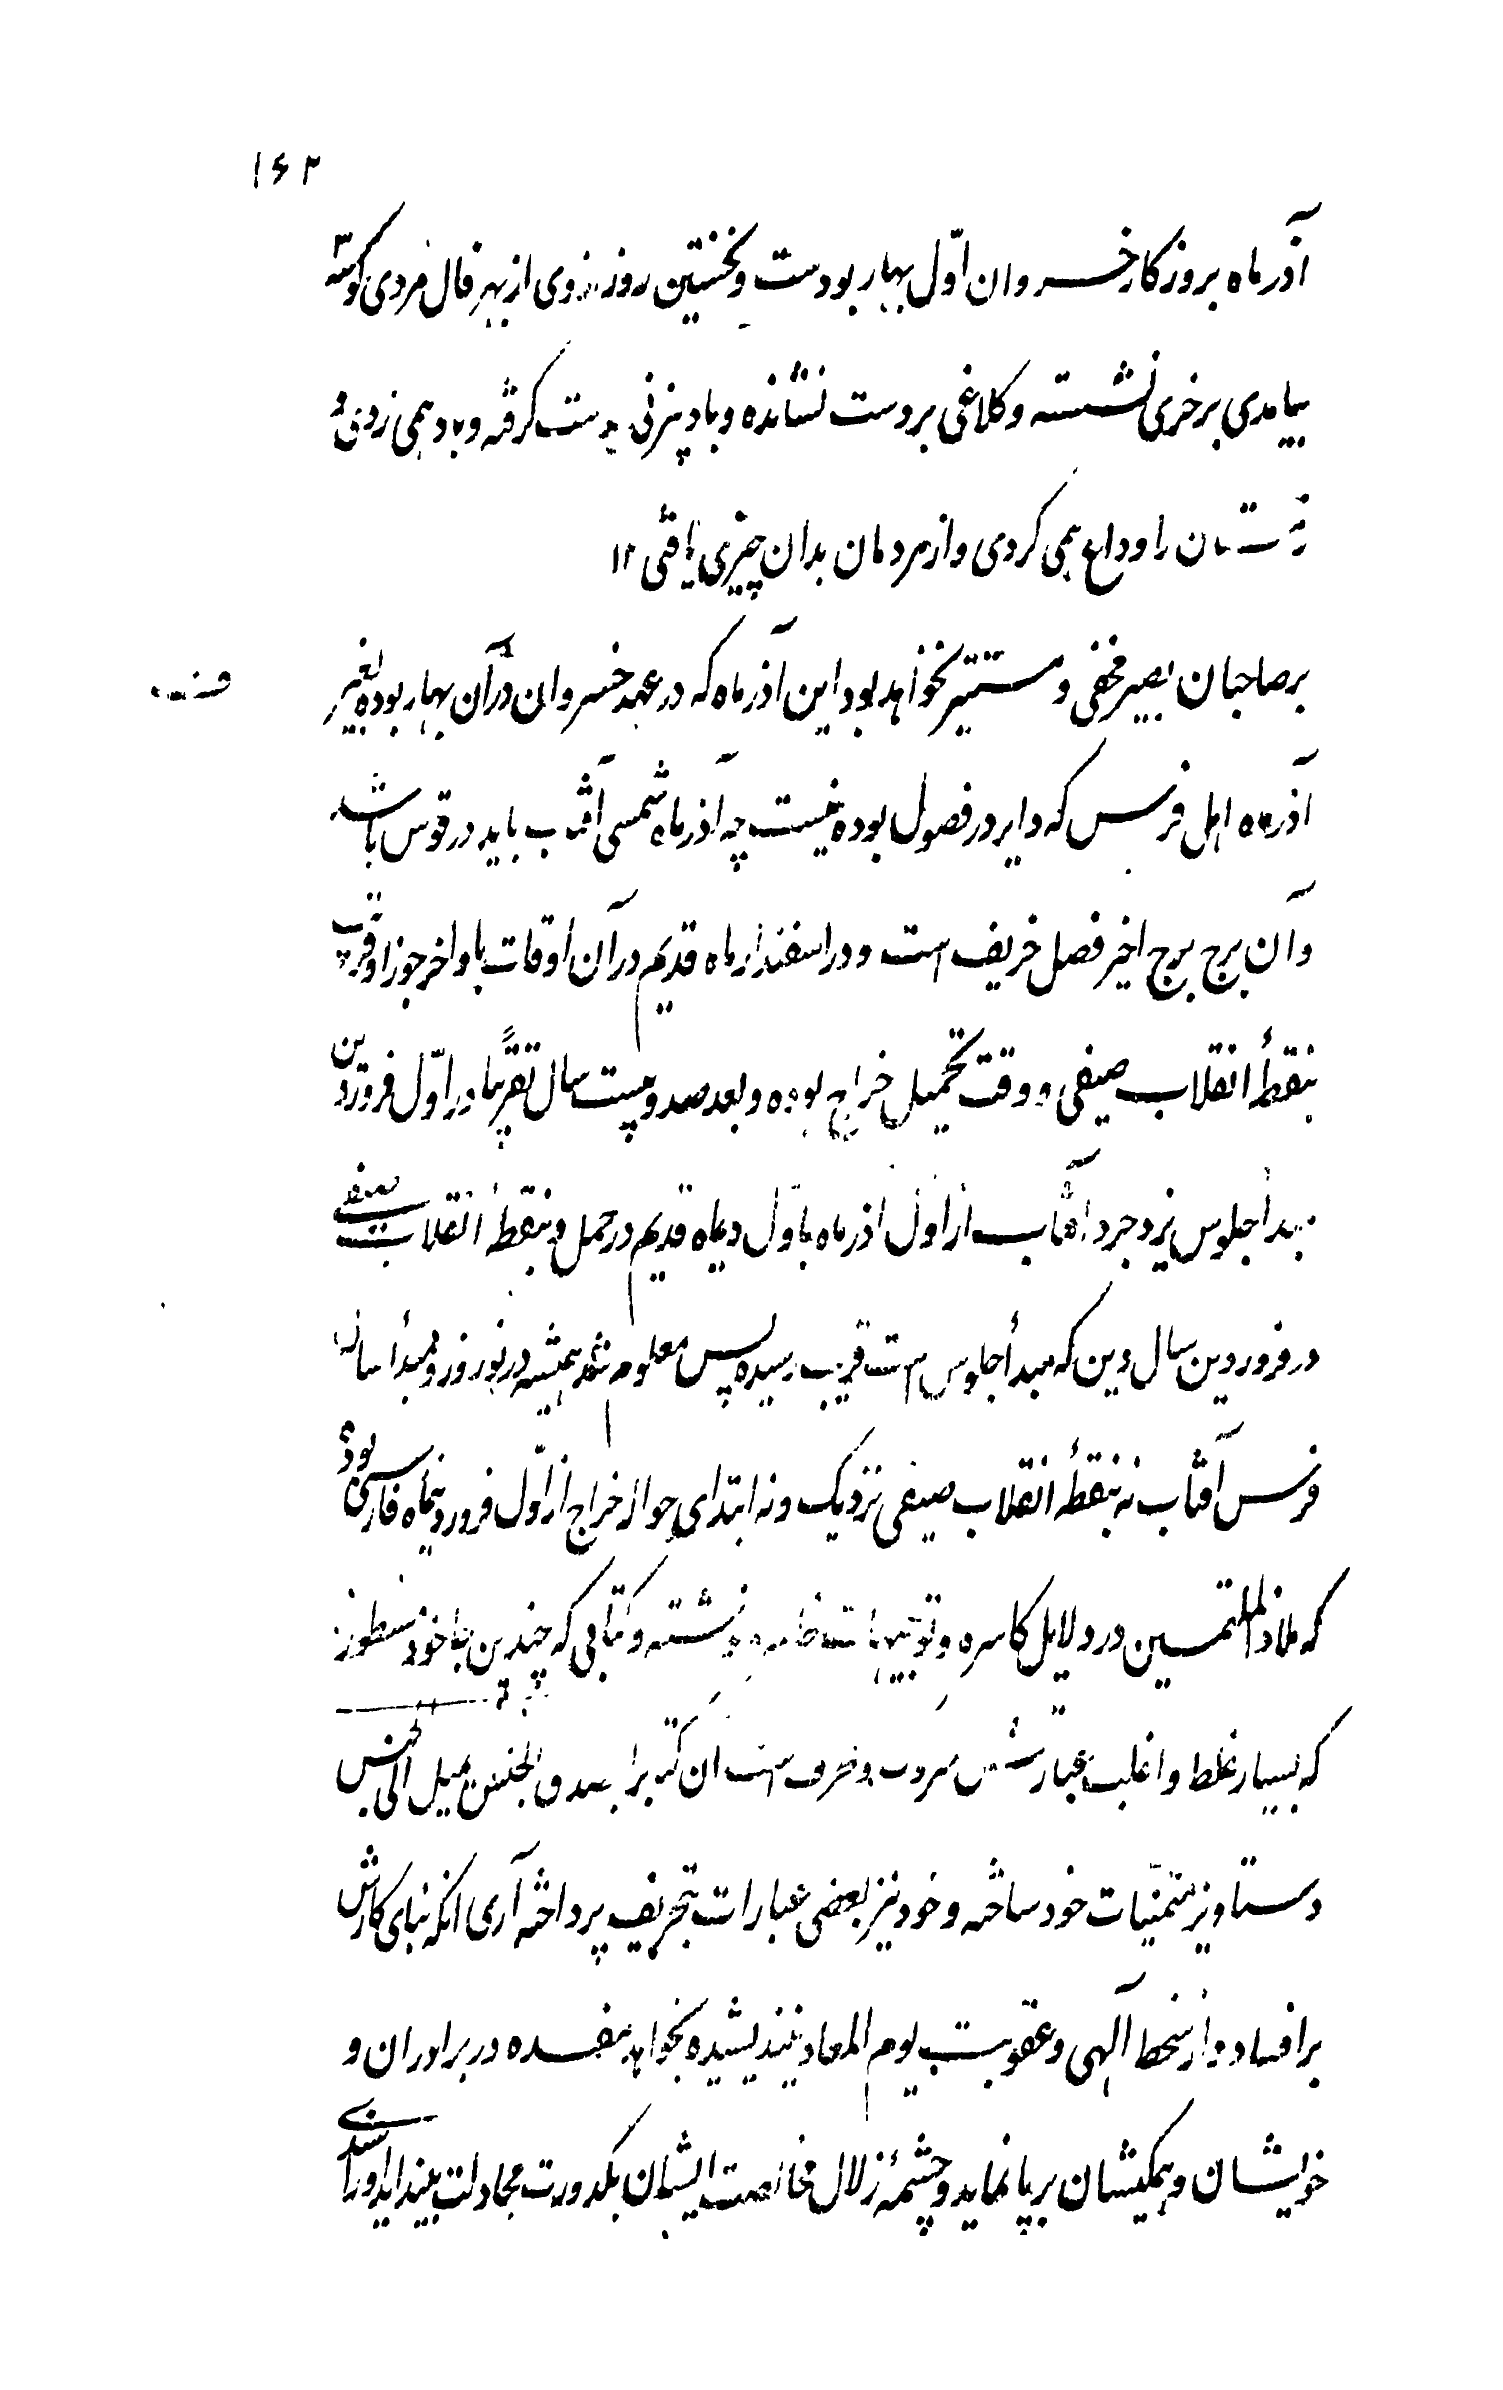 ۱۶۳
آذرماه بروزکار خسروان اوّل بهار بودست و نخستین روز از وی از بهر فال مردی کوسه
بیامدی بر خری نشسته و کلاغی بر دست نشانده و باد بیزنی بدست کرفته و باد همی زدی و
زمستان را وداع همی کردی و از مردمان بدان چیزی یافتی ۱۲
بر صاحبان بصیر مخفی و مستتیر نخواهد بود این آذرماه که در عهد خسروان در آن بهار بوده بغیر
آذرماه اهل فرس که دایر در فصول بوده نیست چه آذرماه شمسی آفتاب باید در قوس باشد
و آن برج برج اخیر فصل خریف است و در اسفندارماه قدیم در آن اوقات باواخر جوزا و قریب
بنقطهٔ انقلاب صیفی و وقت تحمیل خراج بوده و بعد صد و بیست سال تقریباً در اوّل فروردین
مبدأ جلوس یزدجرد آفتاب از اوّل آذرماه باوّل دیماه قدیم در حمل و بنقطهٔ انقلاب صیفی
در فروردین سال وین که مبدأ جلوس است قریب رسیده پس معلوم شد همیشه در نوروز و مبدأ سال
فرس آفتاب نه بنقطهٔ انقلاب صیفی نزدیک و نه ابتدای حواز خراج از اوّل فروردیماه فارسی بوده
که ملاذ الملتمسین در دلایل کاسره و نوشته و کتابی که چندین جا خود مسطور
که بسیار غلط و اغلب عبارتش و است آن کتبرا الجنس یمیل الی الجنس
دستاویز متمنّیات خود ساخته و خود نیز بعضی عبارات بتحریف پرداخته آری آنکه بنای کارش
بر افساد و از سخط آلهی و عقوبت یوم المعاد نیندیشیده بخواهد مفسده در برادران و
خویشان و همکیشان بر پا نماید و چشمهٔ زلال مخالصت ایشان بکدورت مجادلت بیندا